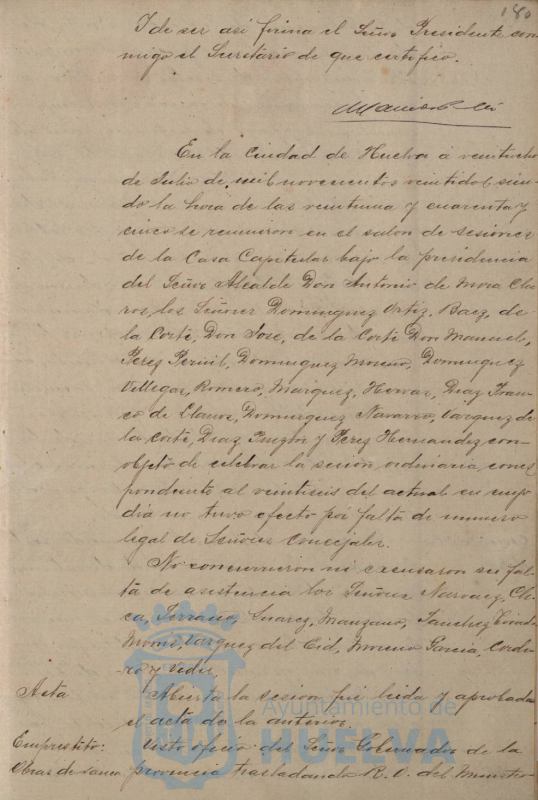 180
Y de ser así firma el Señor Presidente con
migo el Secretario de que certifico.
En la Ciudad de Huelva a veintiocho
de Julio de mil novecientos veintidos, sien
do la hora de las veintiuna y cuarenta y
cinco se reunieron en el salon de sesiones
de la Casa Capitular bajo la presidencia
del Señor Alcalde Don Antonio de Mora Cla
ros, los Señores Dominguez Ortiz, Baez, de
la Corte, Don Jose, de la Corte Don Manuel,
Perez Dominguez Moreno, Dominguez
Villegas, Romero, Marquez, Diaz Fran
co de Llanos, Dominguez Navarro, Vazquez de
la Corte, Diaz Pinzon y Perez Hernandez con
objeto de celebrar la sesion ordinaria corres
pondiente al veintiseis del actual en cuyo
dia no tuvo efecto por falta de numero
legal de Señores Concejales.
No concurrieron ni excusaron su fal
ta de asistencia los Señores Narvaez, Cli
Serrano, Suarez, Manzano, Sanchez
Vazquez del Cid, Moreno Garcia, Corde
ro y
Acta
Abierta la sesion fué leida y aprobada
el acta de la anterior.
Emprestito:
Obras de
Visto oficio del Señor Gobernador de la
provincia trasladando R. O. del Ministe
Ayuntamiento de
HUELVA